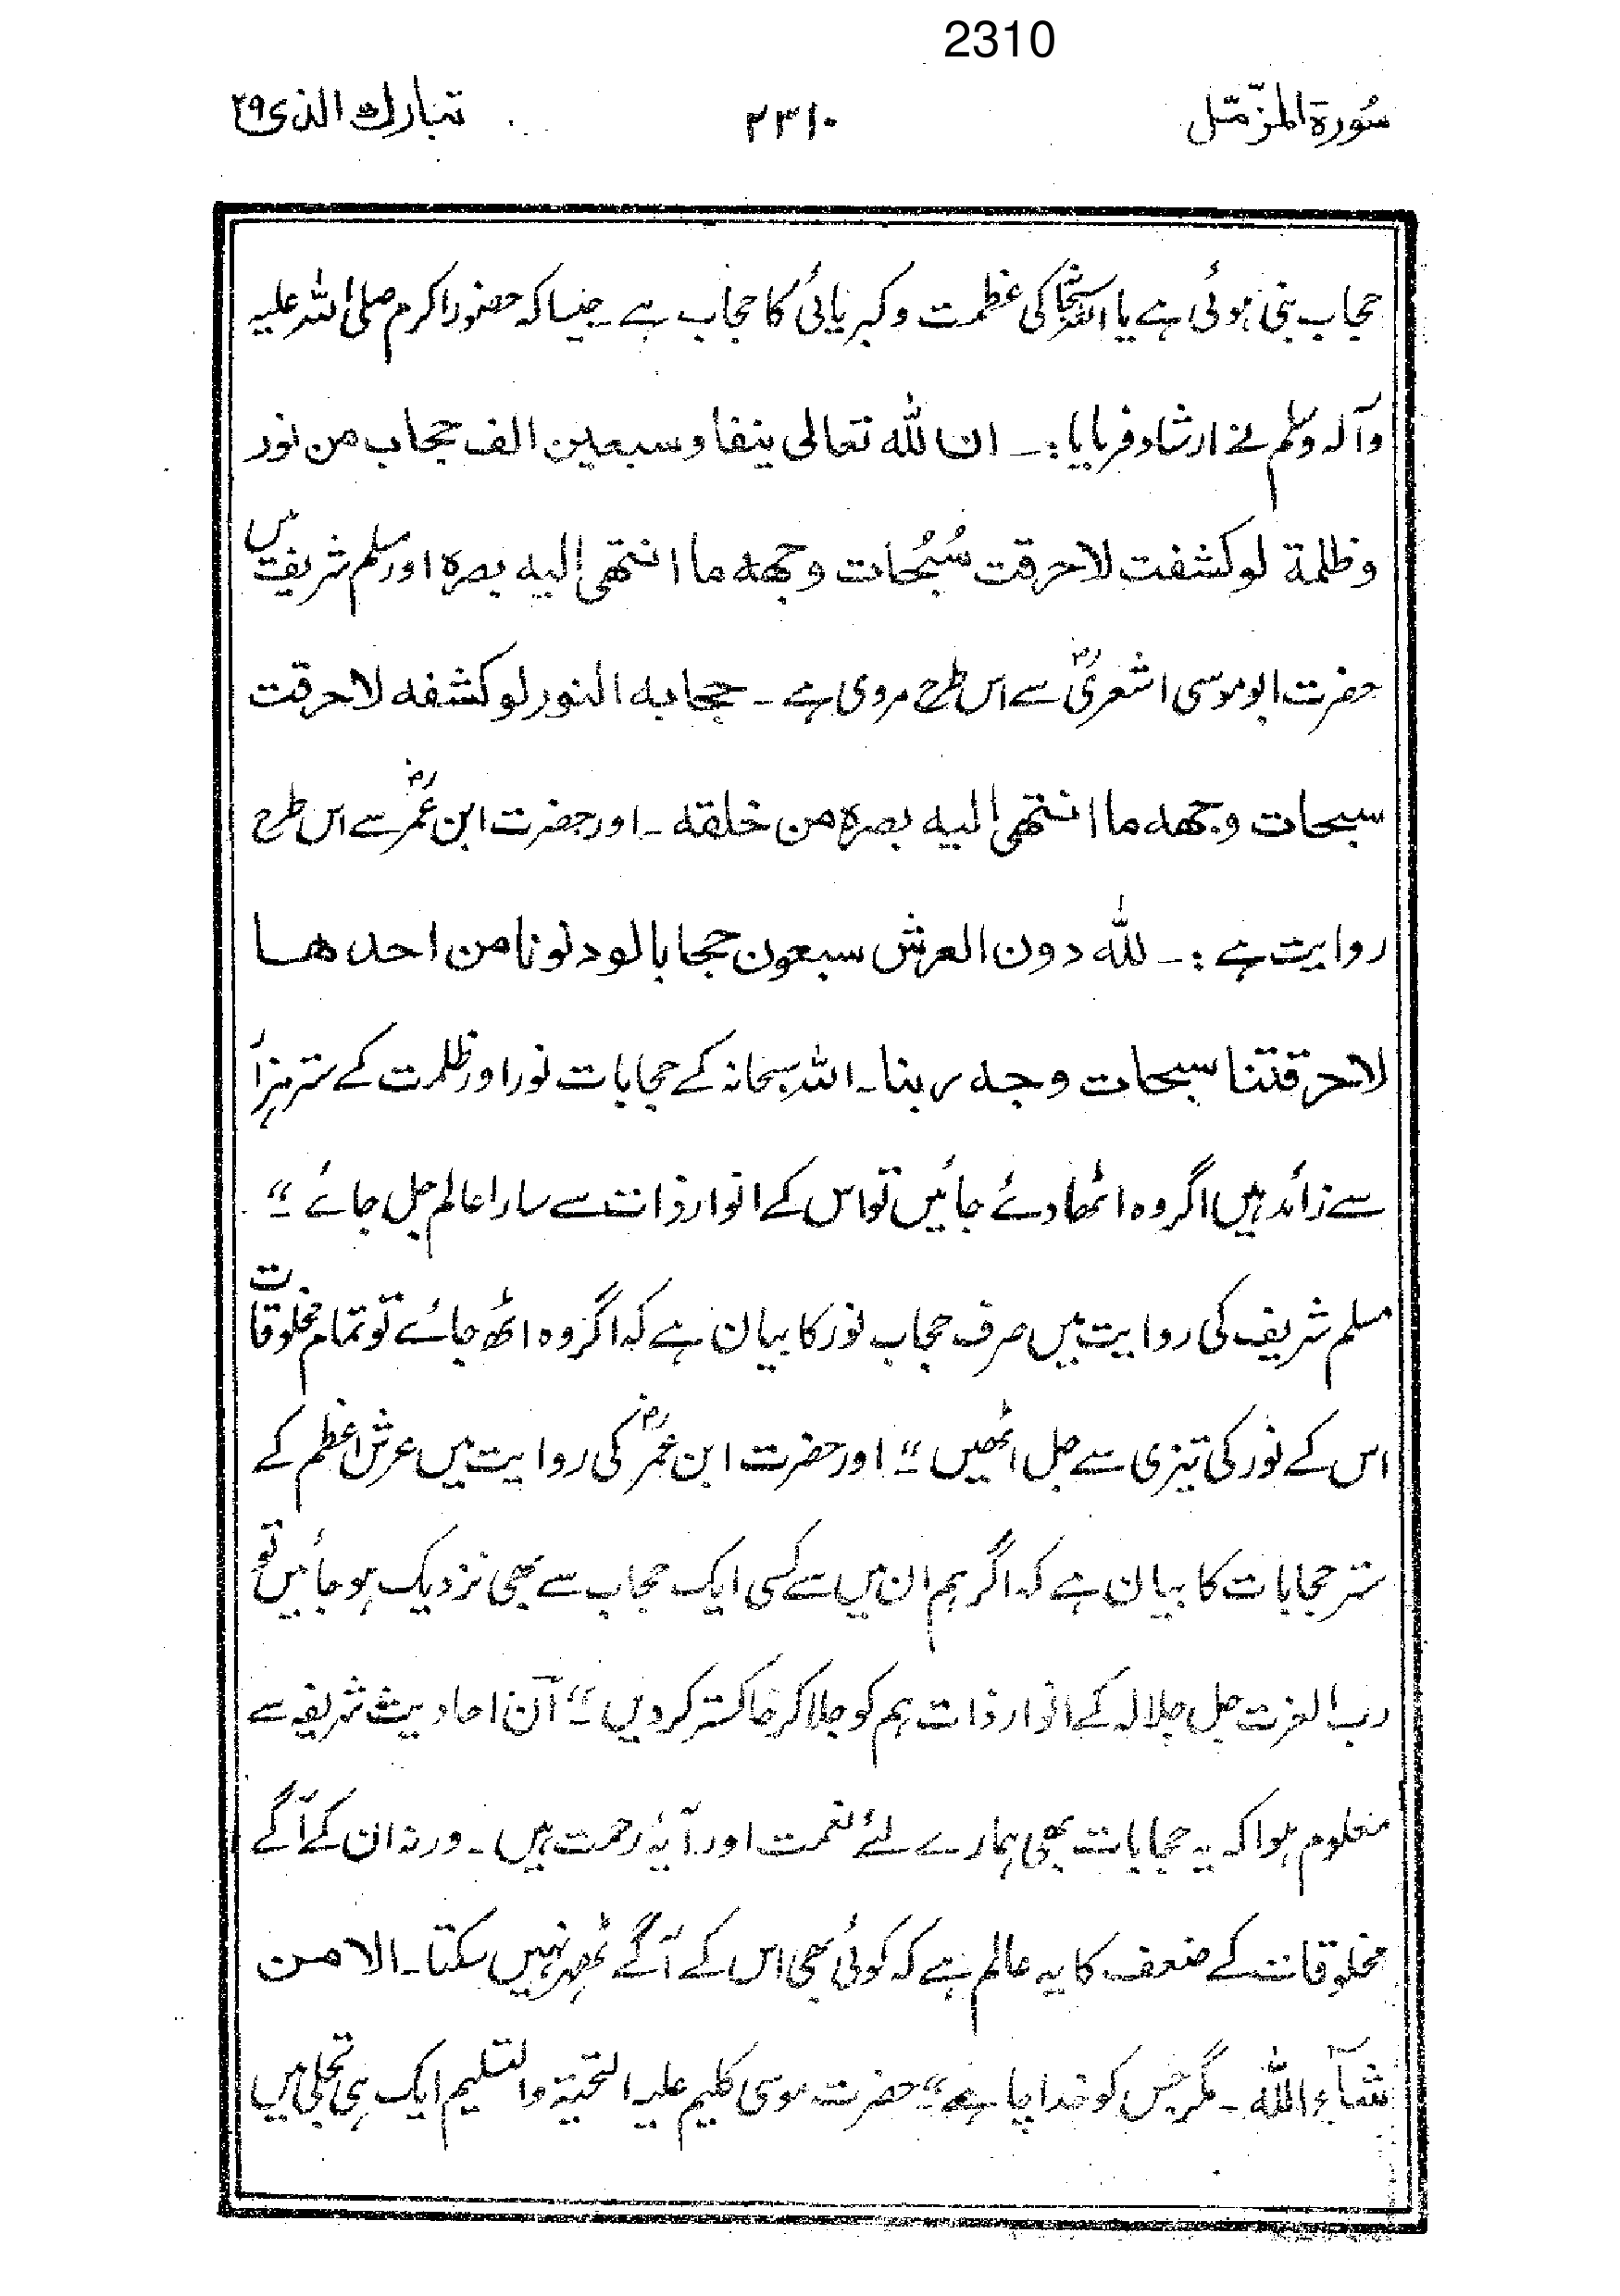 2310
سُورۃ المزّمّل ۲۳۱۰ تبارك الذی ۲۹
حجاب بنی ہوئی ہے یا اللہ تعالیٰ کی عظمت و کبریائی کا حجاب ہے ۔ جیسا کہ حضور اکرم صلی اللہ علیہ
وآلہ وسلم نے ارشاد فرمایا :۔ ان للّٰہ تعالی ینفا وسبعین الف حجاب من نور
وظلمة لوکشفت لاحرقت سُبُحات وجهه ما انتهی الیه بصرہ اور مسلم شریف میں
حضرت ابو موسی اشعریؓ سے اس طرح مروی ہے ۔ حجابه النور لوکشفه لاحرقت
سبحات وجهه ما انتهی الیه بصرہ من خلقه ۔ اور حضرت ابن عمرؓ سے اس طرح
روایت ہے :۔ للّٰہ دون العرش سبعون حجابا لو دلونا من احد ها
لاحرقتنا سبحات وجه ربنا ۔ اللہ سبحانہ کے حجابات نور اور ظلمت کے ستر ہزار
سے زائد ہیں اگر وہ اٹھا دئے جائیں تو اس کے انوار ذات سے سارا عالم جل جائے ۔“
مسلم شریف کی روایت میں صرف حجاب نور کا بیان ہے کہ اگر وہ اٹھ جائے تو تمام مخلوقات
اس کے نور کی تیزی سے جل اٹھیں ۔“ اور حضرت ابن عمرؓ کی روایت میں عرش اعظم کے
ستر حجابات کا بیان ہے کہ اگر ہم ان میں سے کسی ایک حجاب سے بھی نزدیک ہو جائیں تو
رب العزت جل جلالہ کے انوار ذات ہم کو جلا کر خاکستر کر دیں ۔“ ان احادیث شریفہ سے
معلوم ہوا کہ یہ حجابات بھی ہمارے لئے نعمت اور آیۂ رحمت ہیں ۔ ورنہ ان کے آگے
مخلوقات کے ضعف کا یہ عالم ہے کہ کوئی بھی اس کے آگے ٹھہر نہیں سکتا ۔ الا من
شآء اللّٰہ ۔ مگر جس کو خدا چاہے ۔“ حضرت موسی کلیم علیہ التحیۃ والتسلیم ایک ہی تجلی میں